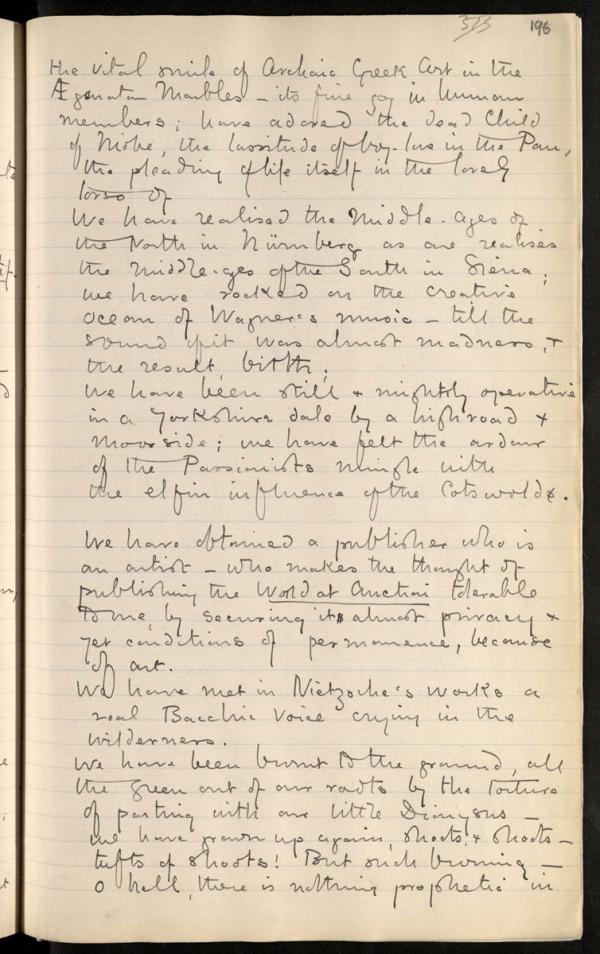 196
the vital smile of Archaic Greek Art in the
Æginatan Marbles – its fine joy in human
members; have adored the dead Child
of Niobe, the lassitude of boy-love in the Pan,
the pleading of life itself in the lovely
torso of
We have realised the Middle-Ages of
the North in Nürnberg as one realises
the Middle-ages of the South in Siena;
we have rocked on the creative
ocean of Wagner's music – till the
sound of it was almost madness, +
the result, birth;
We have been still + mightily operative
in a Yorkshire dale by a highroad +
moorside; we have felt the ardour
of the Passionists mingle with
the elfin influence of the Cotswolds.
We have obtained a publisher who is
an artist – who makes the thought of
publishing the World at Auction tolerable
to me, by securing its almost privacy +
yet conditions of permanence, because
of art.
We have met in Nietzsche's works a
real Bacchic Voice crying in the
wilderness.
We have been burnt to the ground, all
the green out of our roots by the torture
of parting with our little Dionysus –
we have grown up again, shoots, + shoots –
tufts of shoots! But such burning –
O hell, there is nothing prophetic in